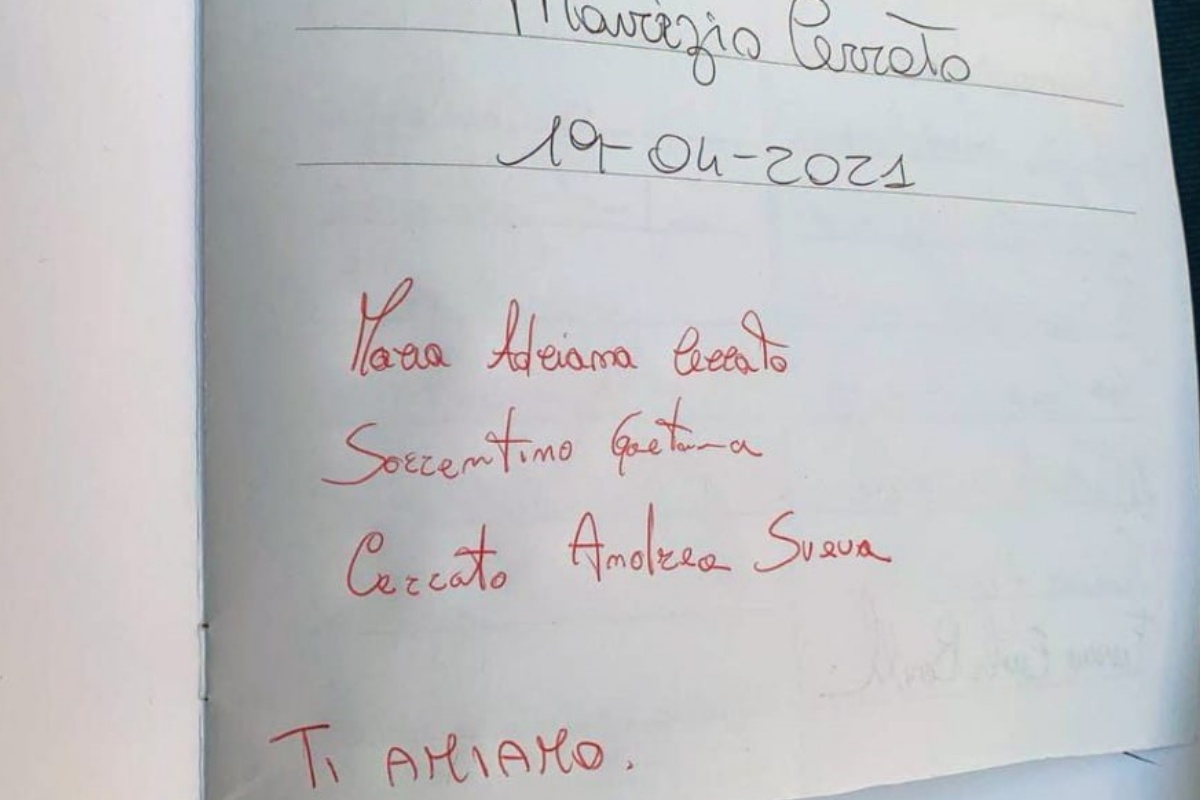 Maurizio Cerrato
19-04-2021
Maria Adriana Cerrato
Sorrentino Gaetana
Cerrato Andrea Sveva
Ti AMIAMO.